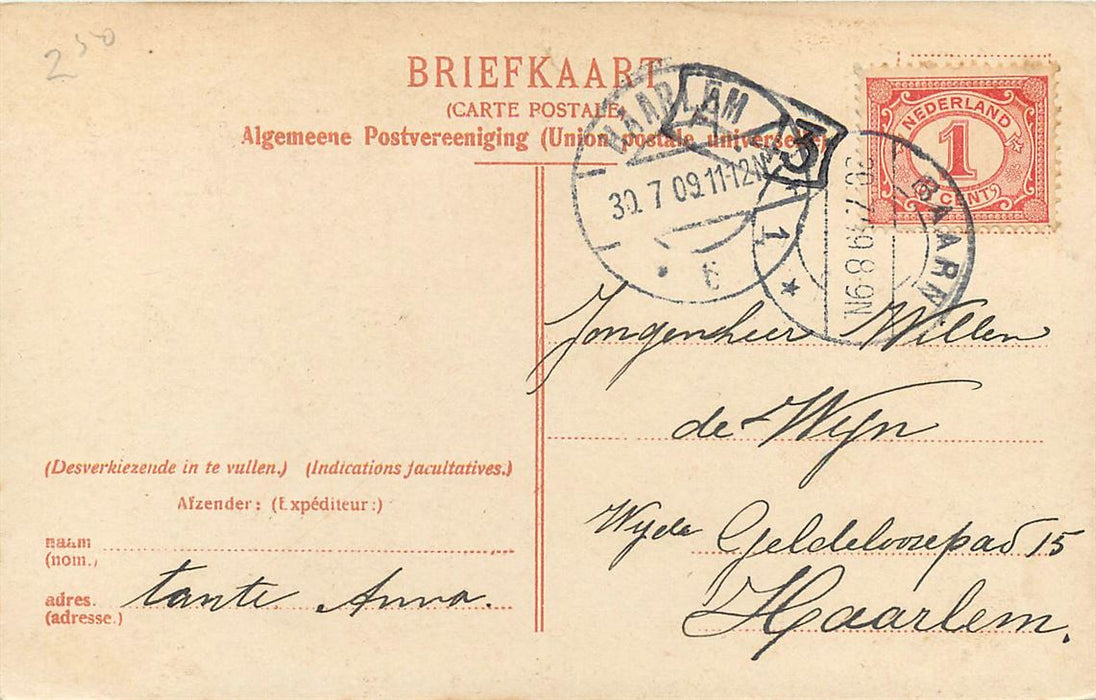 250
BRIEFKAART
(CARTE POSTALE)
Algemeene Postvereeniging (Union postale universelle)
HAARLEM
30.7 09.11-12N
6
3
NEDERLAND
1
CENT
BAARN
N6-8 69
1
Jongenheer Willem
de Wijn
Wijde Geldeloozepad 15
Haarlem.
(Desverkiezende in te vullen.) (Indications facultatives.)
Afzender: (Expéditeur:)
naam
(nom.)
adres.
(adresse.)
tante Anna.